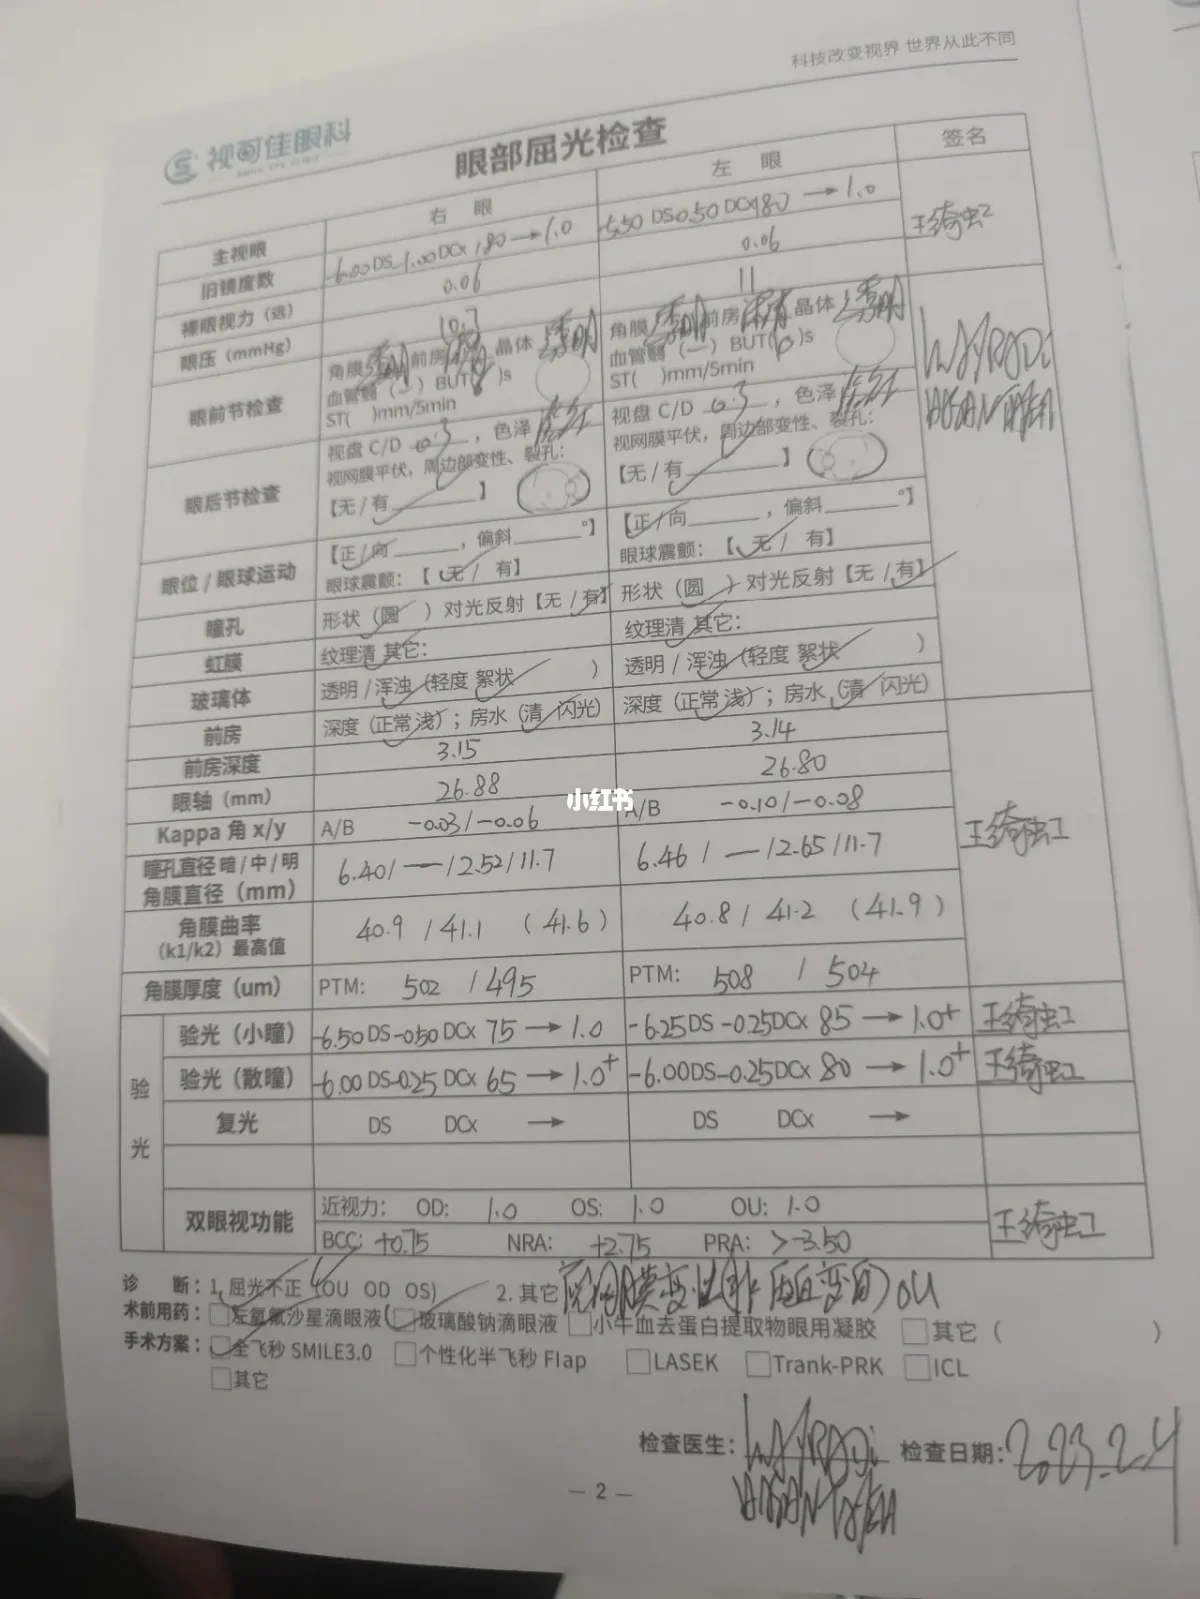 科技改变视界 世界从此不同
视可佳眼科
眼部屈光检查
右 眼 左 眼 签名
主视眼
旧镜度数 -6.00DS-1.00DCx180→1.0 -5.50DS-0.50DCx180→1.0
裸眼视力（远） 0.06 0.06
眼压（mmHg） 10.7 11
眼前节检查 角膜透明 前房 晶体透明 角膜透明 前房 晶体透明
血管翳（—）BUT( )s 血管翳（—）BUT( )s
ST( )mm/5min ST( )mm/5min
眼后节检查 视盘 C/D 0.3，色泽 视盘 C/D 0.3，色泽
视网膜平伏，周边部变性、裂孔： 视网膜平伏，周边部变性、裂孔：
【无/有】 【无/有】
眼位/眼球运动 【正/向，偏斜°】 【正/向，偏斜°】
眼球震颤：【无/ 有】 眼球震颤：【无/ 有】
瞳孔 形状（圆 ）对光反射【无/有】 形状（圆 ）对光反射【无/有】
虹膜 纹理清 其它： 纹理清 其它：
玻璃体 透明/浑浊（轻度 絮状 ） 透明/浑浊（轻度 絮状 ）
前房 深度（正常 浅）；房水（清 闪光） 深度（正常 浅）；房水（清 闪光）
前房深度 3.15 3.14
眼轴（mm） 26.88 26.80
Kappa 角 x/y A/B -0.03/-0.06 A/B -0.10/-0.08
瞳孔直径 暗/中/明 6.40/—/2.52/11.7 6.46/—/2.65/11.7
角膜直径（mm）
角膜曲率 40.9/41.1（41.6） 40.8/41.2（41.9）
（k1/k2）最高值
角膜厚度（um） PTM: 502/495 PTM: 508/504
验光
验光（小瞳） -6.50DS-0.50DCx75→1.0 -6.25DS-0.25DCx85→1.0+
验光（散瞳） -6.00DS-0.25DCx65→1.0+ -6.00DS-0.25DCx80→1.0+
复光 DS DCx → DS DCx →
双眼视功能 近视力： OD: 1.0 OS: 1.0 OU: 1.0
BCC: +0.75 NRA: +2.75 PRA: >-3.50
诊 断：1. 屈光不正（OU OD OS） 2. 其它 OU
术前用药：□左氧氟沙星滴眼液 □玻璃酸钠滴眼液 □小牛血去蛋白提取物眼用凝胶 □其它（ ）
手术方案：□全飞秒 SMILE3.0 □个性化半飞秒 Flap □LASEK □Trank-PRK □ICL
□其它
检查医生： 检查日期：2023.2.4
— 2 —
小红书